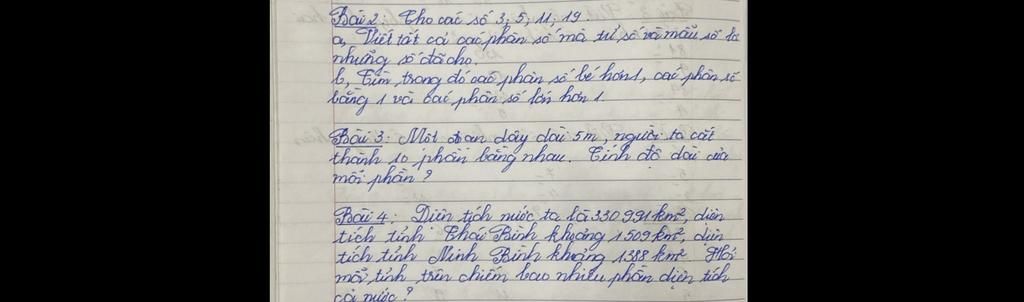 Bài 2: Cho các số 3; 5; 11; 19
a, Viết tất cả các phân số mà tử số và mẫu số là
những số đã cho.
b, Tìm trong đó các phân số bé hơn 1, các phân số
bằng 1 và các phân số lớn hơn 1.
Bài 3: Một đoạn dây dài 5m, người ta cắt
thành 10 phần bằng nhau. Tính độ dài của
mỗi phần?
Bài 4: Diện tích nước ta là 330 991 km², diện
tích tỉnh Thái Bình khoảng 1509 km², diện
tích tỉnh Ninh Bình khoảng 1388 km². Hỏi
mỗi tỉnh trên chiếm bao nhiêu phần diện tích
cả nước?